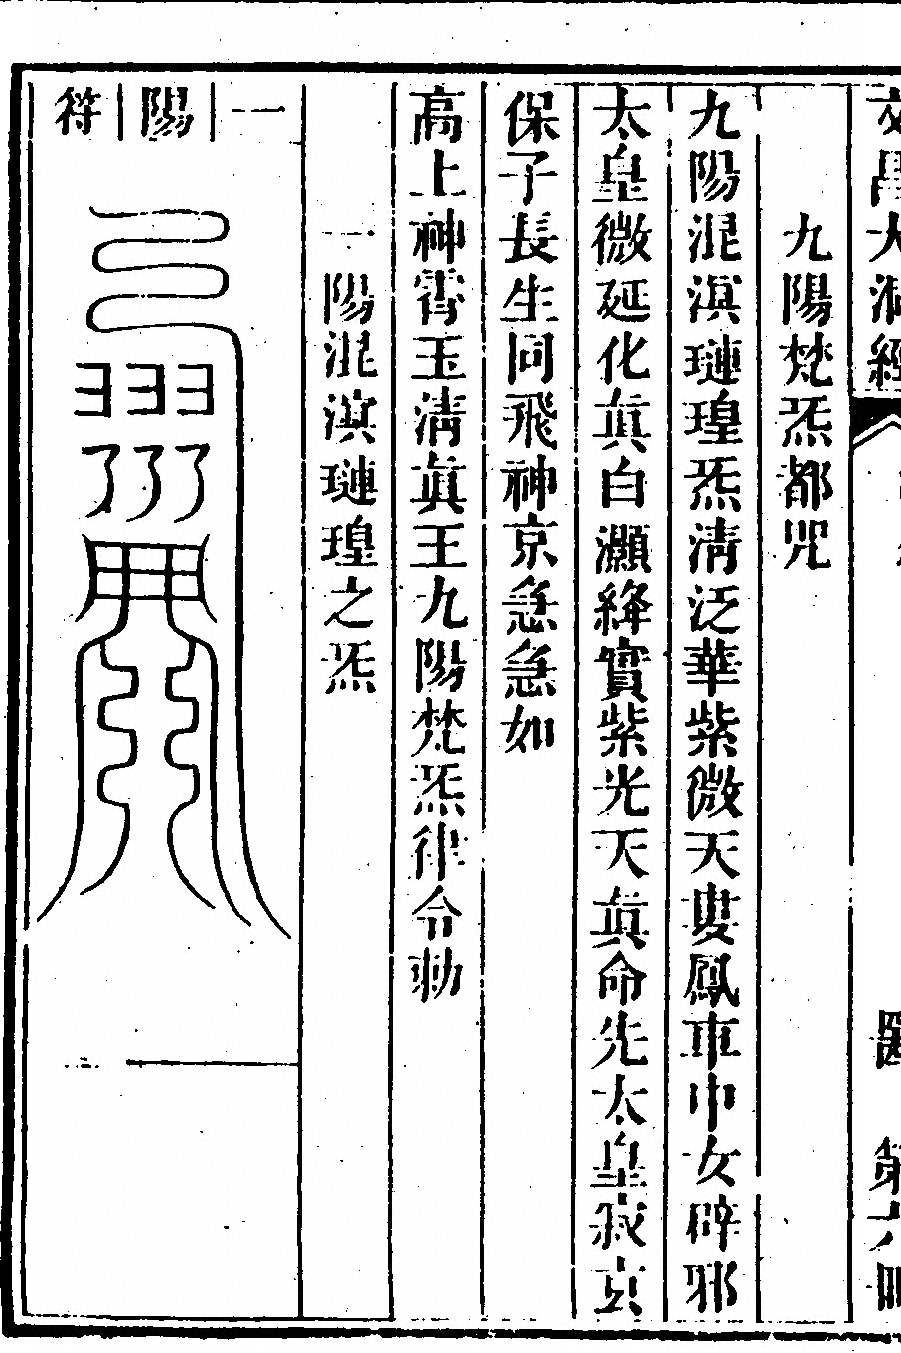 文昌大洞經
九陽梵炁都咒
九陽混溟璉瑝炁清泛華紫微天婁鳳車巾女辟邪
太皇微延化真白灝絳實紫光天真命先太皇寂玄
保子長生同飛神京急急如
高上神霄玉清真王九陽梵炁律令勅
一陽混溟璉瑝之炁
一陽符